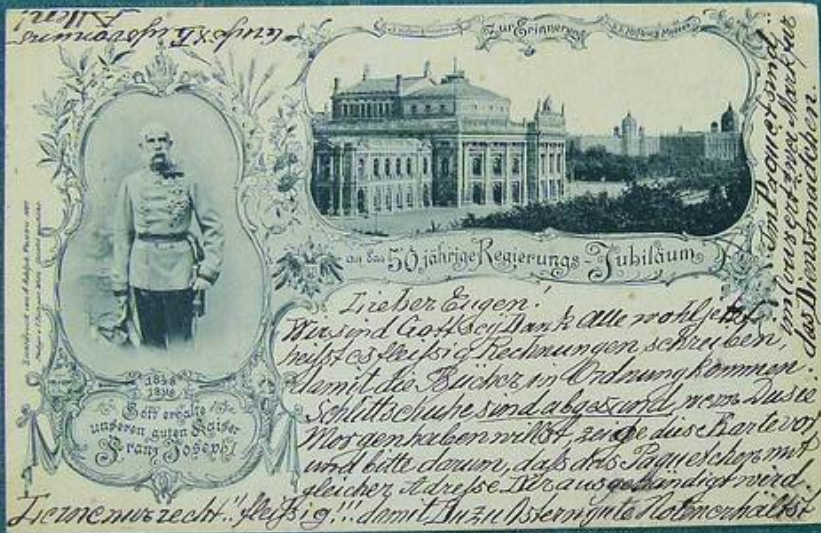 Zur Erinnerung
an das 50jährige Regierungs-Jubiläum
1848
1898
Gott erhalte
unseren guten Kaiser
Franz Joseph!
Lieber Eugen!
Wir sind Gott sey Dank alle wohl jetzt
heißt es fleißig Rechnungen schreiben,
damit die Bücher in Ordnung kommen.
Schlittschuhe sind abgesand, wenn Du sie
Morgen haben willst, zeige diese Karte vor
und bitte darum, daß das Paquetchen mit
gleicher Adreße Dir ausgehändigt wird.
Lerne nur recht!! fleißig!!! damit Du zu Ostern gute Noten erhältst
Im Paquet sind
zwei Mark für
das Dienstmädchen.
Gruß
Allen!